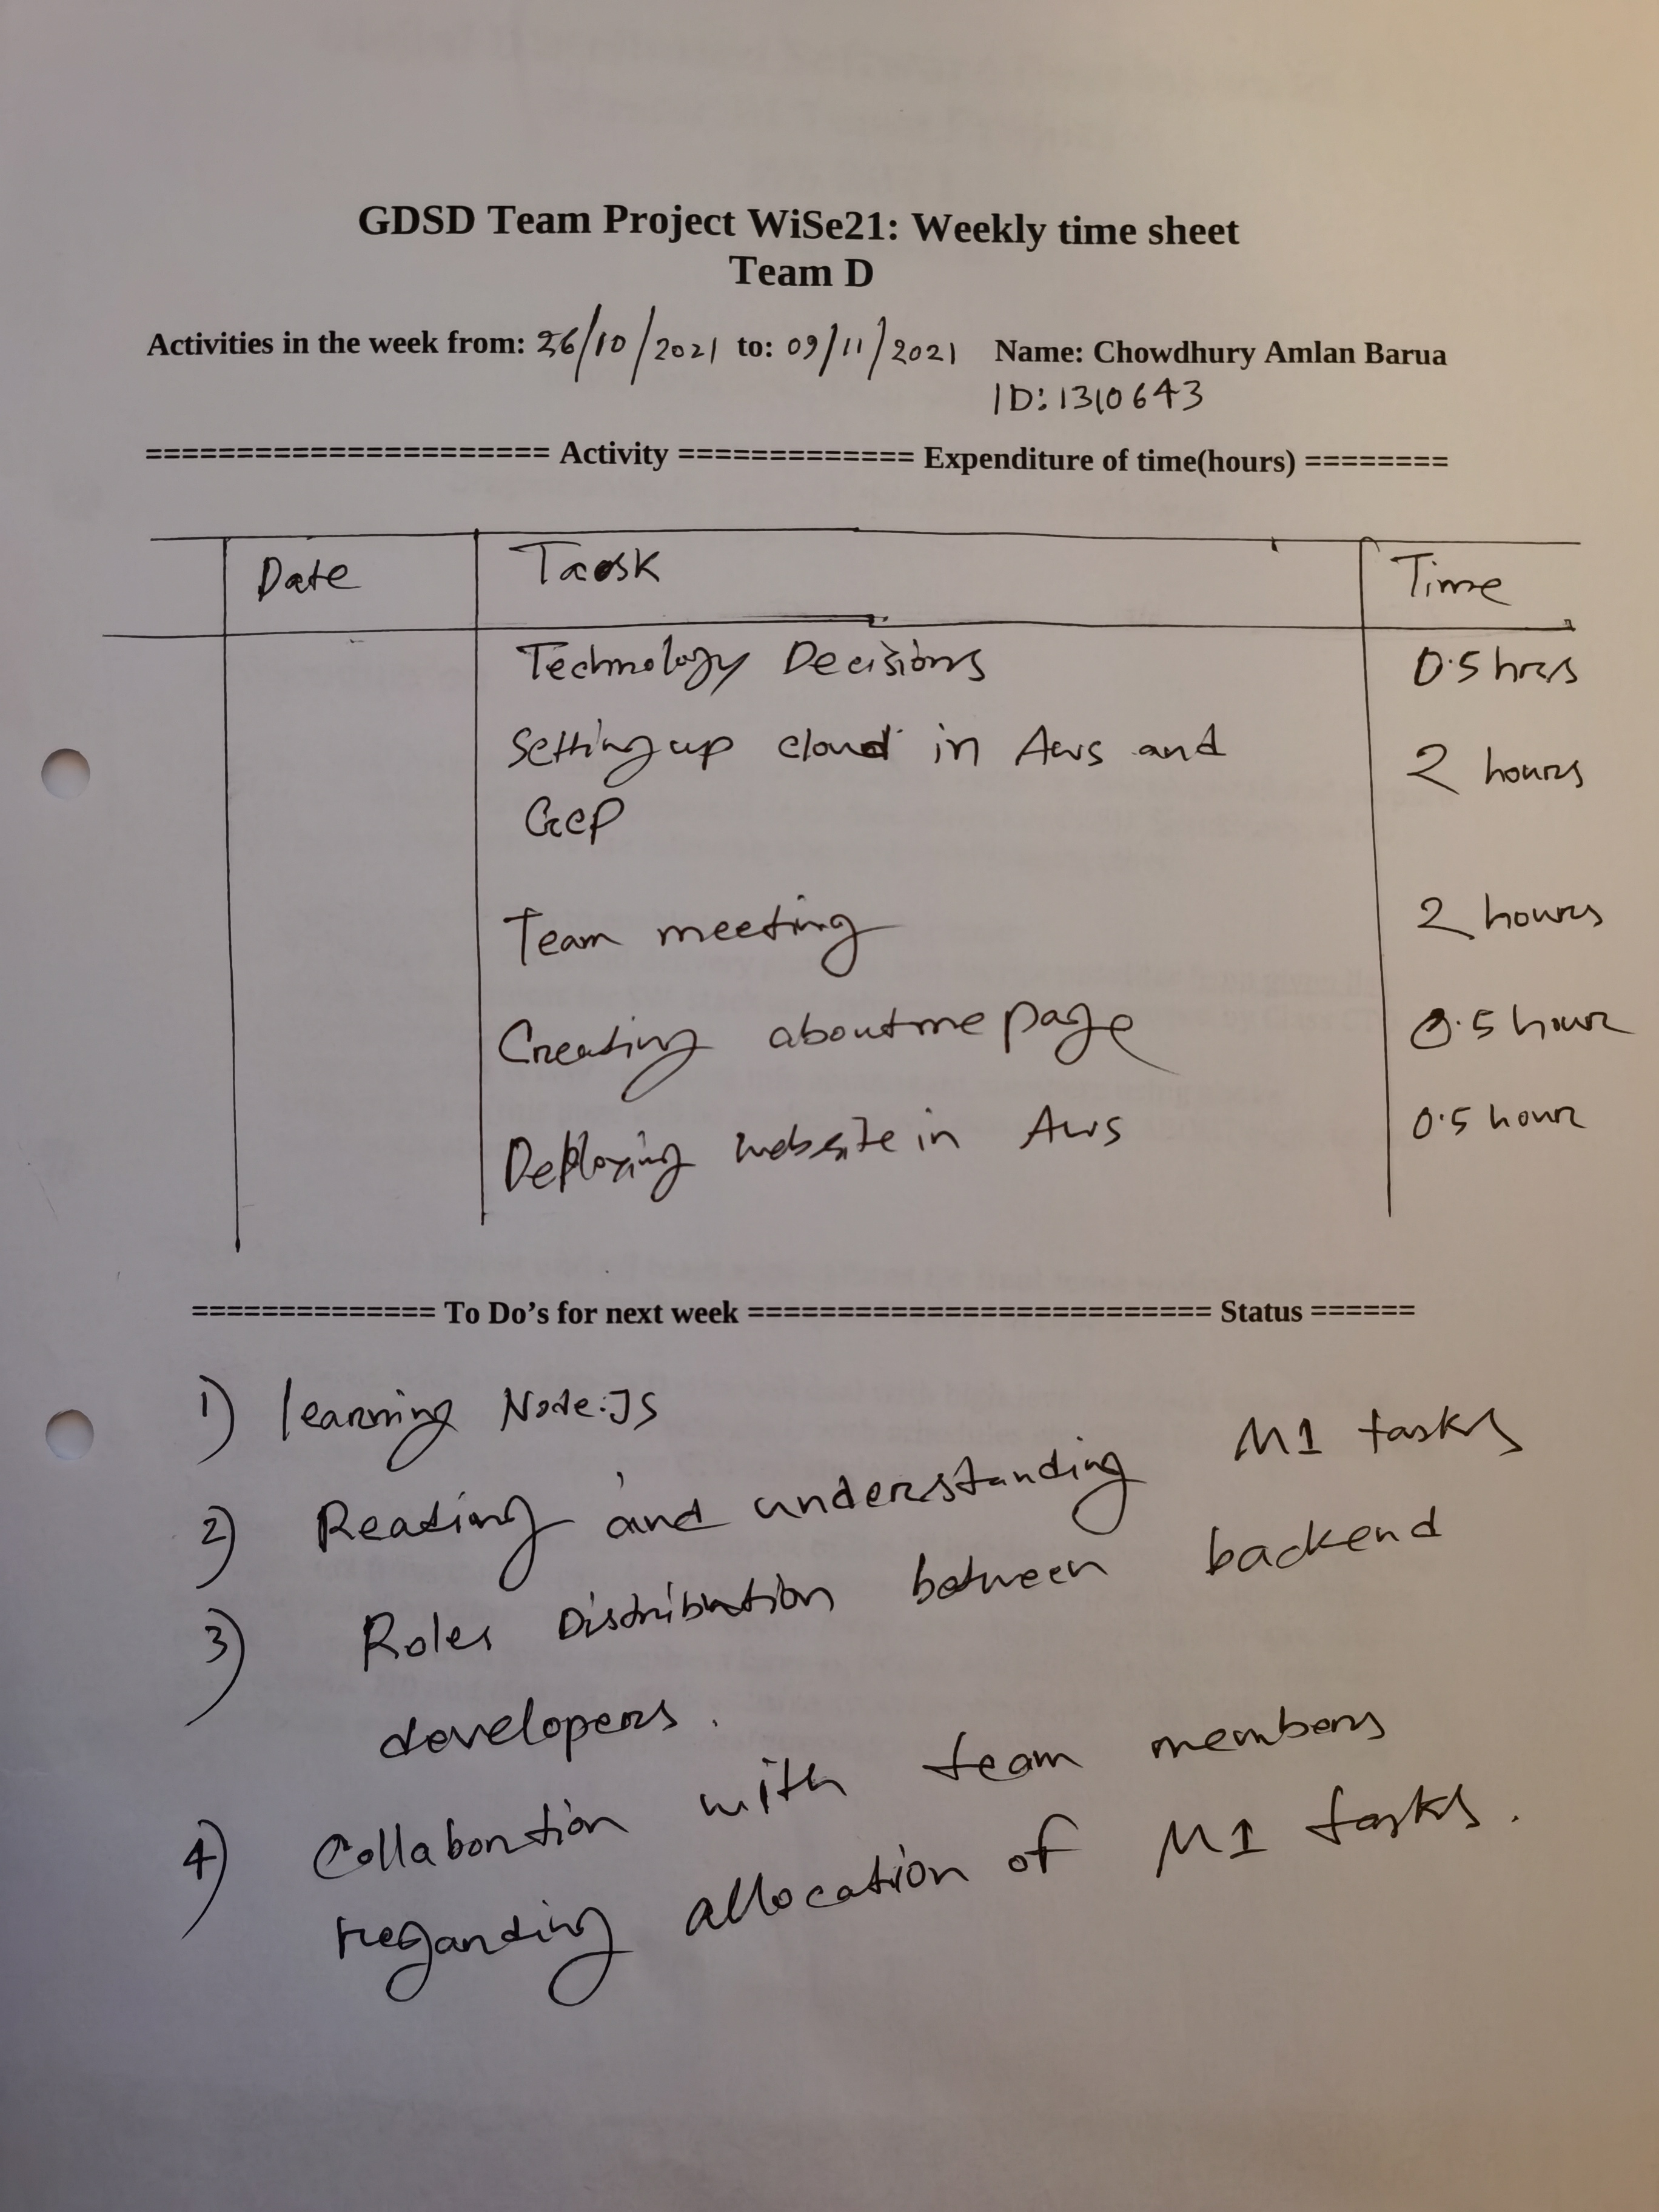 GDSD Team Project WiSe21: Weekly time sheet
Team D
Activities in the week from: 26/10/2021 to: 09/11/2021 Name: Chowdhury Amlan Barua
ID: 1310643
====================== Activity ============= Expenditure of time(hours) ========
Date Task Time
Technology Decisions 0.5 hrs
Setting up cloud in Aws and 2 hours
GCP
Team meeting 2 hours
Creating about me page 0.5 hour
Deploying website in Aws 0.5 hour
============== To Do's for next week ========================== Status ======
1) learning Node.JS
2) Reading and understanding M1 tasks
3) Roles Distribution between backend
developers.
4) Collaboration with team members
regarding allocation of M1 tasks.